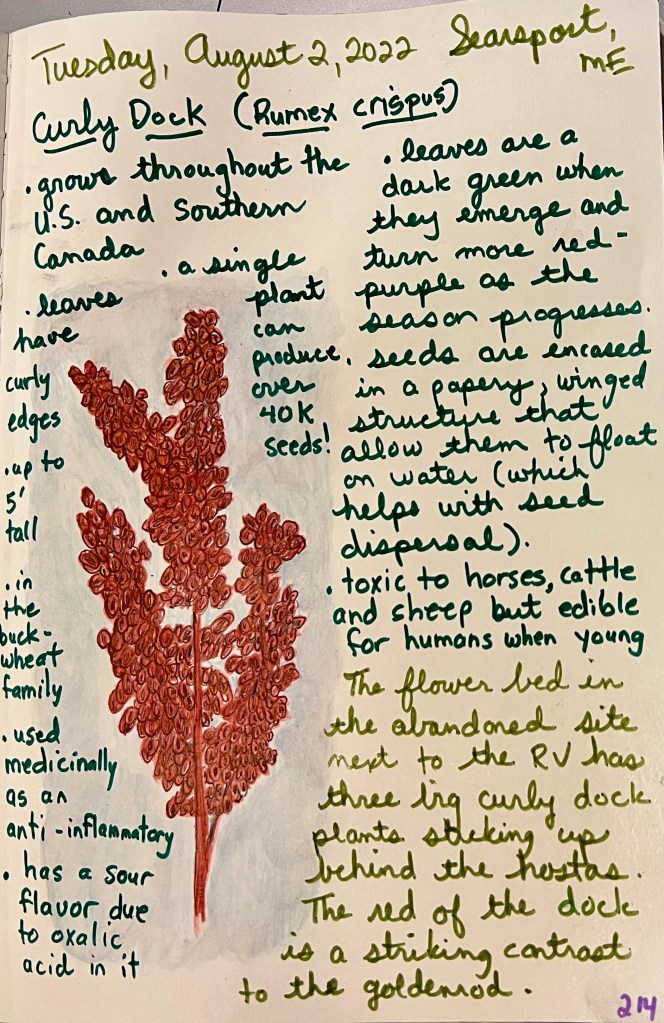 Tuesday, August 2, 2022 Searsport,
ME
Curly Dock (Rumex crispus)
• grows throughout the
U.S. and Southern
Canada
• a single
plant
can
produce
over
40K
seeds!
• leaves
have
curly
edges
• up to
5'
tall
• in
the
buck-
wheat
family
• used
medicinally
as an
anti-inflammatory
• has a sour
flavor due
to oxalic
acid in it
• leaves are a
dark green when
they emerge and
turn more red-
purple as the
season progresses.
• seeds are encased
in a papery, winged
structure that
allow them to float
on water (which
helps with seed
dispersal).
• toxic to horses, cattle
and sheep but edible
for humans when young
The flower bed in
the abandoned site
next to the RV has
three big curly dock
plants sticking up
behind the hostas.
The red of the dock
is a striking contrast
to the goldenrod.
214